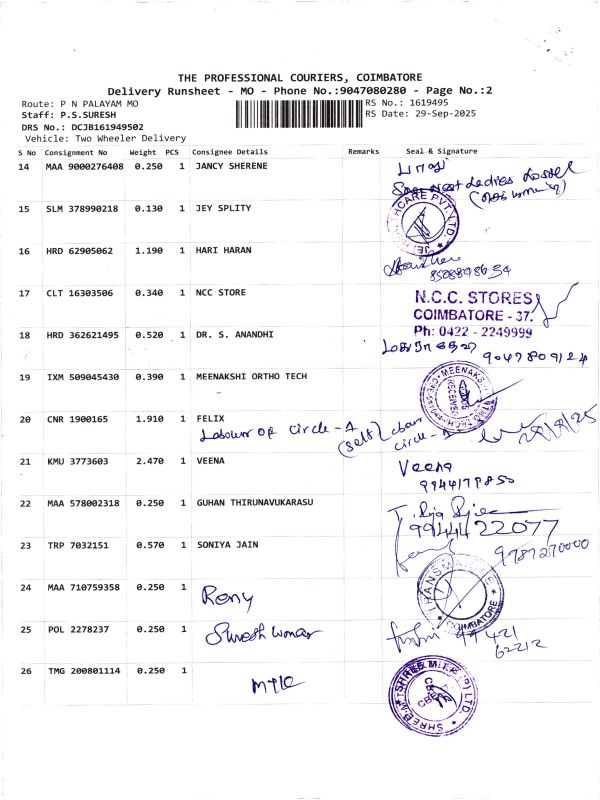 THE PROFESSIONAL COURIERS, COIMBATORE
Delivery Runsheet - MO - Phone No.:9047080280 - Page No.:2
Route: P N PALAYAM MO
RS No.: 1619495
Staff: P.S.SURESH
RS Date: 29-Sep-2025
DRS No.: DCJB161949502
Vehicle: Two Wheeler Delivery
S No Consignment No Weight PCS Consignee Details Remarks Seal & Signature
14 MAA 9000276408 0.250 1 JANCY SHERENE
Ladies Hostel
15 SLM 378990218 0.130 1 JEY SPLITY
HEALTHCARE PVT. LTD.
16 HRD 62905062 1.190 1 HARI HARAN
17 CLT 16303506 0.340 1 NCC STORE
N.C.C. STORES
COIMBATORE - 37.
Ph: 0422 - 2249999
18 HRD 362621495 0.520 1 DR. S. ANANDHI
19 IXM 509045430 0.390 1 MEENAKSHI ORTHO TECH
20 CNR 1900165 1.910 1 FELIX
Labour op circle-A (self) Labour circle-A
21 KMU 3773603 2.470 1 VEENA
Veena
22 MAA 578002318 0.250 1 GUHAN THIRUNAVUKARASU
9944422077
23 TRP 7032151 0.570 1 SONIYA JAIN
9787270000
24 MAA 710759358 0.250 1
Remy
COIMBATORE
25 POL 2278237 0.250 1
Suresh kumar
99421
62212
26 TMG 200801114 0.250 1